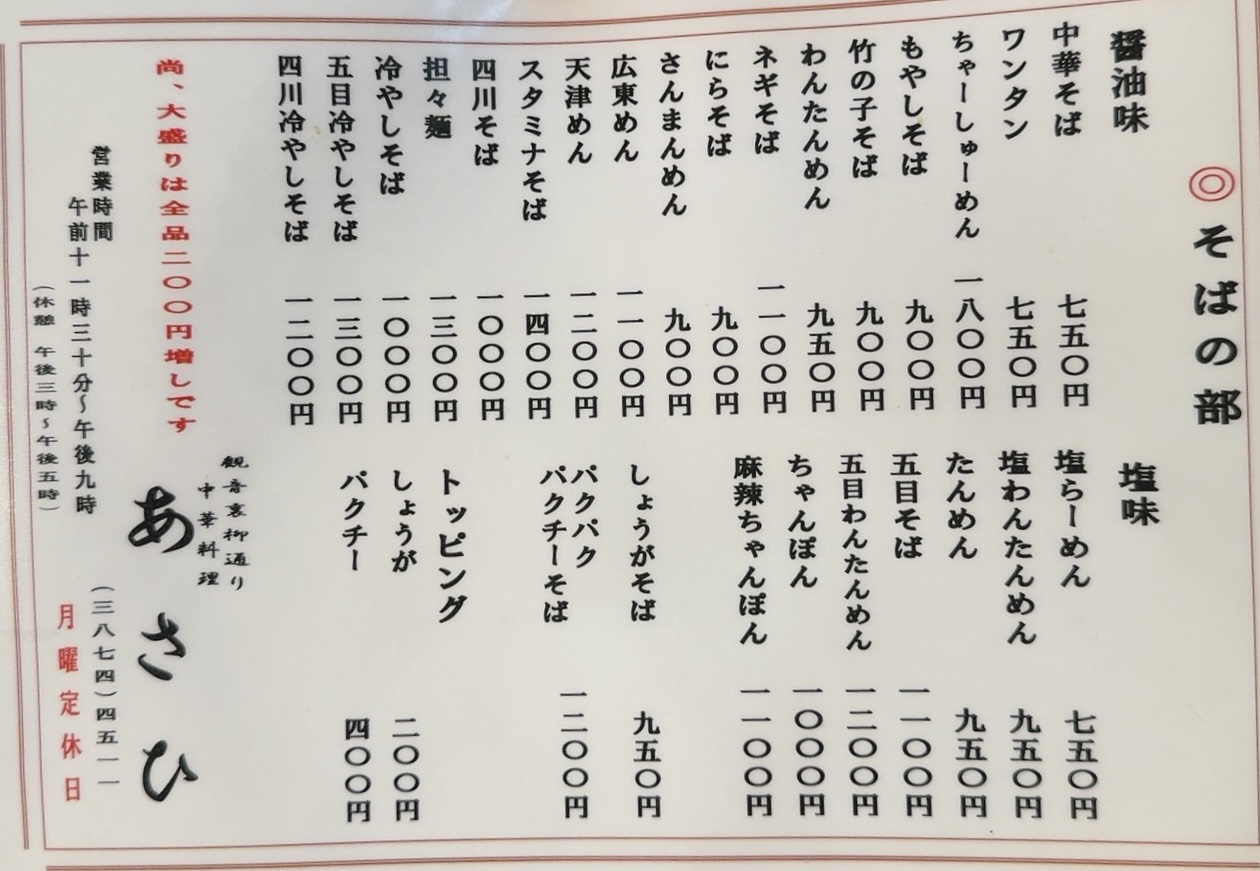 ◎そばの部
醤油味
中華そば 七五〇円
ワンタン 七五〇円
ちゃーしゅーめん 一八〇〇円
もやしそば 九〇〇円
竹の子そば 九〇〇円
わんたんめん 九五〇円
ネギそば 一一〇〇円
にらそば 九〇〇円
さんまんめん 九〇〇円
広東めん 一一〇〇円
天津めん 一二〇〇円
スタミナそば 一四〇〇円
四川そば 一〇〇〇円
担々麺 一三〇〇円
冷やしそば 一〇〇〇円
五目冷やしそば 一三〇〇円
四川冷やしそば 一二〇〇円
塩味
塩らーめん 七五〇円
塩わんたんめん 九五〇円
たんめん 九五〇円
五目そば 一一〇〇円
五目わんたんめん 一二〇〇円
ちゃんぽん 一〇〇〇円
麻辣ちゃんぽん 一一〇〇円
しょうがそば 九五〇円
パクパク
パクチーそば 一二〇〇円
トッピング
しょうが 二〇〇円
パクチー 四〇〇円
尚、大盛りは全品二〇〇円増しです
観音裏柳通り
中華料理
あさひ
(三八七四)四五一一
月曜定休日
営業時間
午前十一時三十分〜午後九時
(休憩 午後三時〜午後五時)